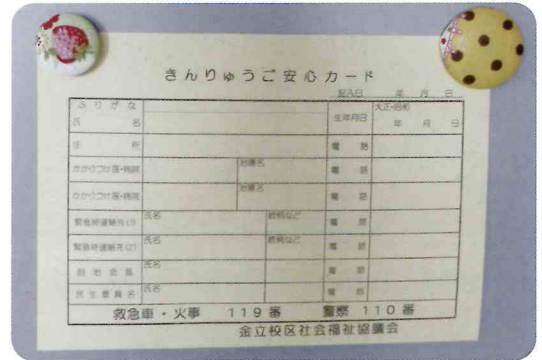 きんりゅうご安心カード
記入日 年 月 日
ふりがな
氏 名 生年月日 大正・昭和 年 月 日
住 所 電 話
かかりつけ医・病院 治療名 電 話
かかりつけ医・病院 治療名 電 話
緊急時連絡先(1) 氏名 続柄など 電 話
緊急時連絡先(2) 氏名 続柄など 電 話
自 治 会 長 氏名 電 話
民生委員名 氏名 電 話
救急車・火事 119番 警察 110番
金立校区社会福祉協議会